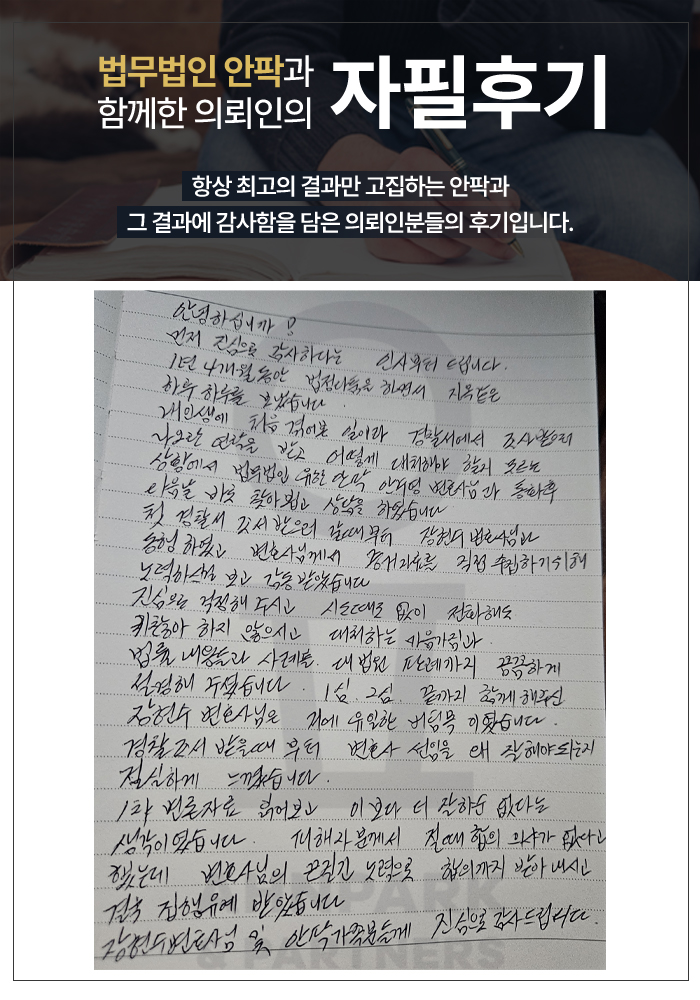 법무법인 안팍과
함께한 의뢰인의
자필후기
항상 최고의 결과만 고집하는 안팍과
그 결과에 감사함을 담은 의뢰인분들의 후기입니다.
안녕하십니까?
먼저 진심으로 감사하다는 인사부터 드립니다.
1년 4개월 동안 법정다툼을 하면서 지옥같은
하루 하루를 보냈습니다.
내인생에 처음 겪어본 일이라 경찰서에서 조사받으러
나오란 연락을 받고 어떻게 대처해야 할지 모르는
상황에서 법무법인 유한 안팍 안지영 변호사님과 통화후
다음날 바로 찾아뵙고 상담을 하였습니다
첫 경찰서 조서 받으러 갈때부터 장현수 변호사님과
동행 하였고 변호사님께서 증거자료를 직접 수집하기위해
노력하심을 보고 감동 받았습니다
진심으로 걱정해 주시고 시도때도 없이 전화해도
귀찮아 하지 않으시고 대처하는 마음가짐과
법률 내용들과 사례들. 대법원 판례까지 꼼꼼하게
설명해 주셨습니다. 1심. 2심 끝까지 함께 해주신
장현수 변호사님은 저에 유일한 버팀목 이였습니다.
경찰조서 받을때 부터 변호사 선임을 왜 잘해야 되는지
절실하게 느꼈습니다.
1차 변론자료 읽어보고 이보다 더 잘할순 없다는
생각이였습니다. 피해자분께서 절때 합의 의사가 없다고
했는데 변호사님의 끈질긴 노력으로 합의까지 받아내시고
결국 집행유예 받았습니다
장현수변호사님 및 안팍가족분들께 진심으로 감사드립니다.
ANPARK
& PARTNERS